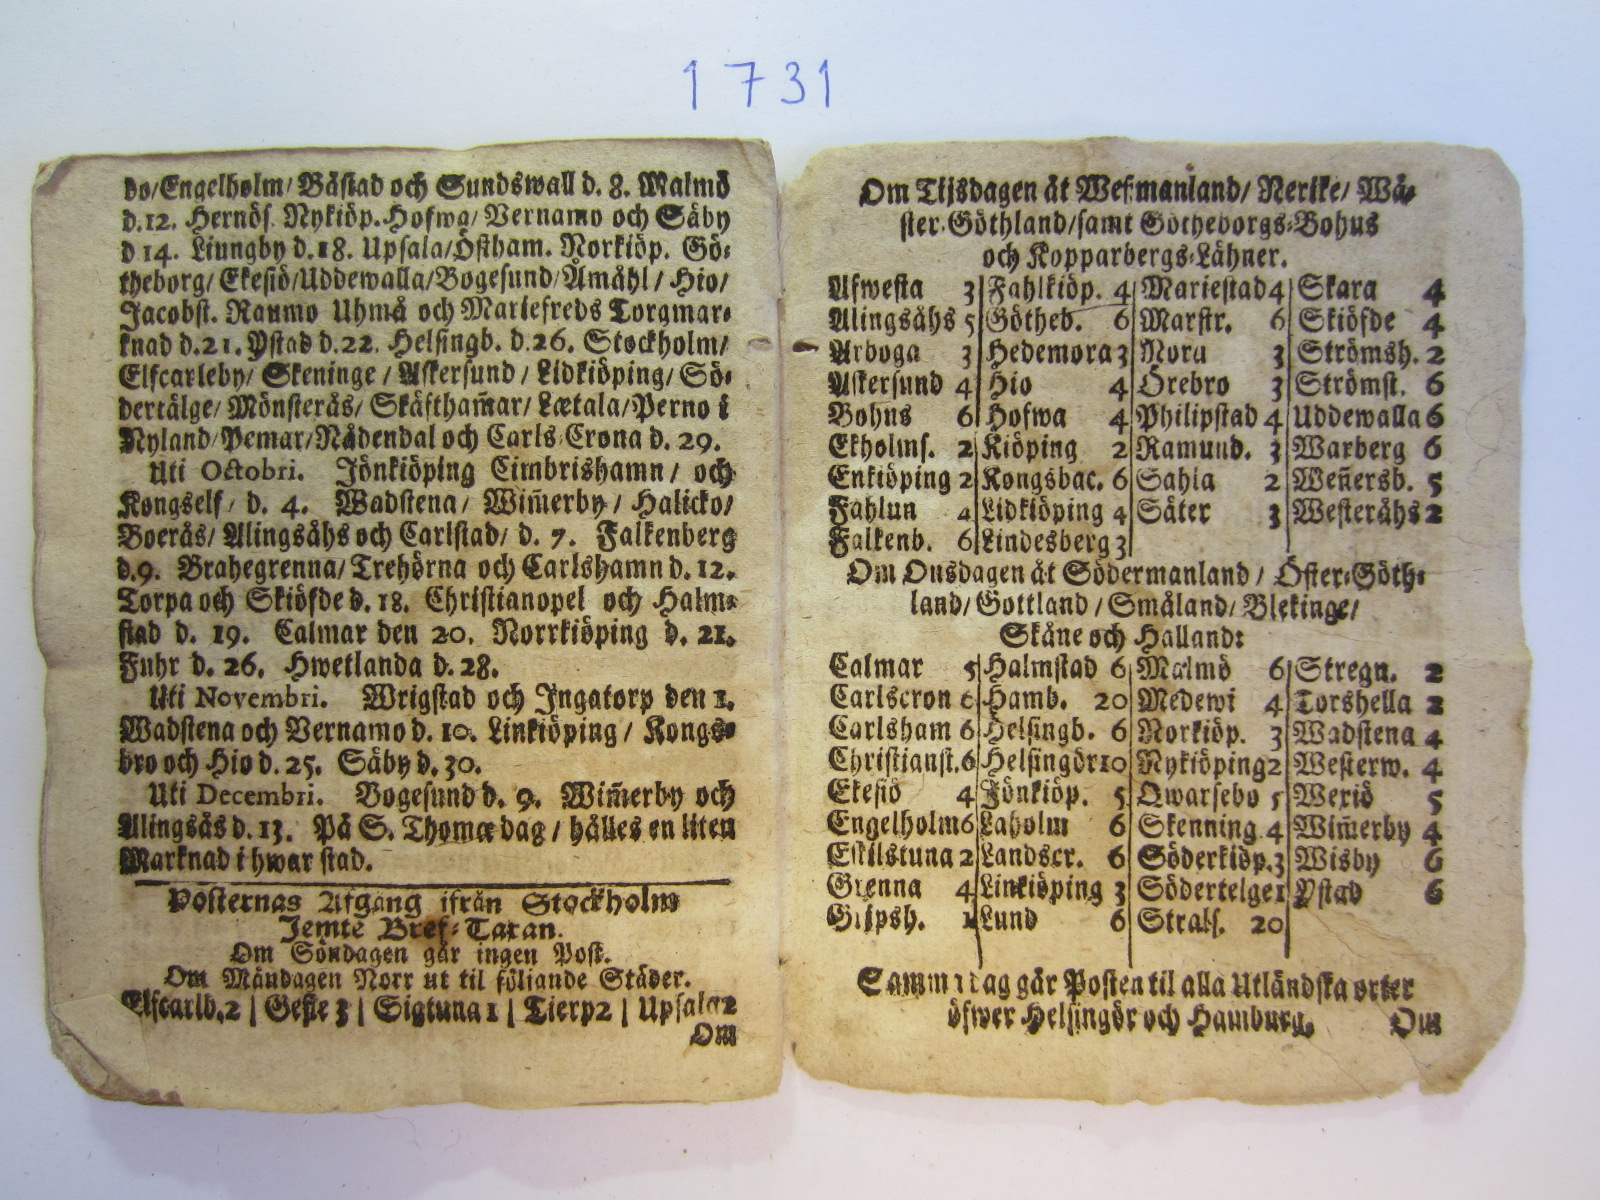 1731
bo/Engelholm/ Båstad och Sundswall d. 8. Malmö
d.12. Hernös. Nykiöp. Hofwa/ Vernamo och Säby
d 14. Liungby d.18. Upsala/Östham. Norkiöp. Gö-
theborg/Ekesiö/Uddewalla/Bogesund/Åmåhl/ Hio/
Jacobst. Raumo Uhmå och Mariefreds Torgmar-
knad d.21. Ystad d.22. Helsingb. d.26. Stockholm/
Elfcarleby/ Skeninge/ Askersund/ Lidkiöping/ Sö-
dertälge/Mönsterås/ Skäftham̃ar/Lætala/Perno i
Nyland/Pemar/Nådendal och Carls-Crona d. 29.
Uti Octobri. Jönkiöping Cimbrishamn/ och
Kongself/ d. 4. Wadstena/ Wim̃erby/ Halicko/
Boerås/ Alingsåhs och Carlstad/ d. 7. Falkenberg
d.9. Brahegrenna/Trehörna och Carlshamn d. 12.
Torpa och Skiöfde d. 18. Christianopel och Halm-
stad d. 19. Calmar den 20. Norrkiöping d. 21.
Fuhr d. 26. Hwetlanda d. 28.
Uti Novembri. Wrigstad och Ingatorp den 1.
Wadstena och Vernamo d. 10. Linkiöping/ Kongs-
bro och Hio d. 25. Säby d. 30.
Uti Decembri. Bogesund d. 9. Wim̃erby och
Alingsås d. 13. På S. Thomæ dag/ hålles en liten
Marknad i hwar stad.
Posternas Afgång ifrån Stockholm
Jemte Bref-Taxan.
Om Söndagen går ingen Post.
Om Måndagen Norr ut til följande Städer.
Elfcarlb.2 | Gefle 3 | Sigtuna 1 | Tierp 2 | Upsala 2
Om
Om Tijsdagen åt Wesmanland/ Nerike/ Wä-
ster-Göthland/samt Götheborgs-Bohus
och Kopparbergs-Lähner.
Afwesta 3 Fahlkiöp. 4 Mariestad 4 Skara 4
Alingsåhs 5 Götheb. 6 Marstr. 6 Skiöfde 4
Arboga 3 Hedemora 3 Nora 3 Strömsh. 2
Askersund 4 Hio 4 Örebro 3 Strömst. 6
Bohus 6 Hofwa 4 Philipstad 4 Uddewalla 6
Ekholms. 2 Kiöping 2 Ramund. 3 Warberg 6
Enkiöping 2 Kongsbac. 6 Sahla 2 Weñersb. 5
Fahlun 4 Lidkiöping 4 Säter 3 Westeråhs 2
Falkenb. 6 Lindesberg 3
Om Onsdagen åt Södermanland/ Öster-Göth-
land/ Gottland/ Småland/ Blekinge/
Skåne och Halland:
Calmar 5 Halmstad 6 Malmö 6 Stregn. 2
Carlscron 6 Hamb. 20 Medewi 4 Torshella 2
Carlsham 6 Helsingb. 6 Norkiöp. 3 Wadstena 4
Christianst. 6 Helsingör 10 Nykiöping 2 Westerw. 4
Ekesiö 4 Jönkiöp. 5 Qwarsebo 5 Wexiö 5
Engelholm 6 Laholm 6 Skenning. 4 Wim̃erby 4
Eskilstuna 2 Landscr. 6 Söderkiöp. 3 Wisby 6
Grenna 4 Linkiöping 3 Södertelge 1 Ystad 6
Gripsh. 1 Lund 6 Strals. 20
Samma dag går Posten til alla Utländska orter
öfwer Helsingör och Hamburg. Om